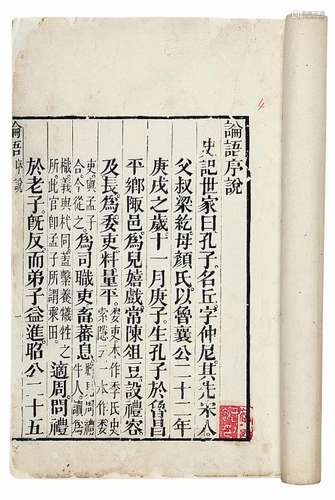 論語序說
史記世家曰孔子名丘字仲尼其先宋人
父叔梁紇母顏氏以魯襄公二十二年
庚戌之歲十一月庚子生孔子於魯昌
平鄉陬邑爲兒嬉戲常陳俎豆設禮容
及長爲委吏料量平委吏本作季氏史索隱云一本作委
吏與孟子合今從之爲司職吏畜蕃息職見周禮牛人讀爲
樴義與杙同蓋繫養犧牲之所此官卽孟子所謂乘田適周問禮
於老子旣反而弟子益進昭公二十五
論語 序說